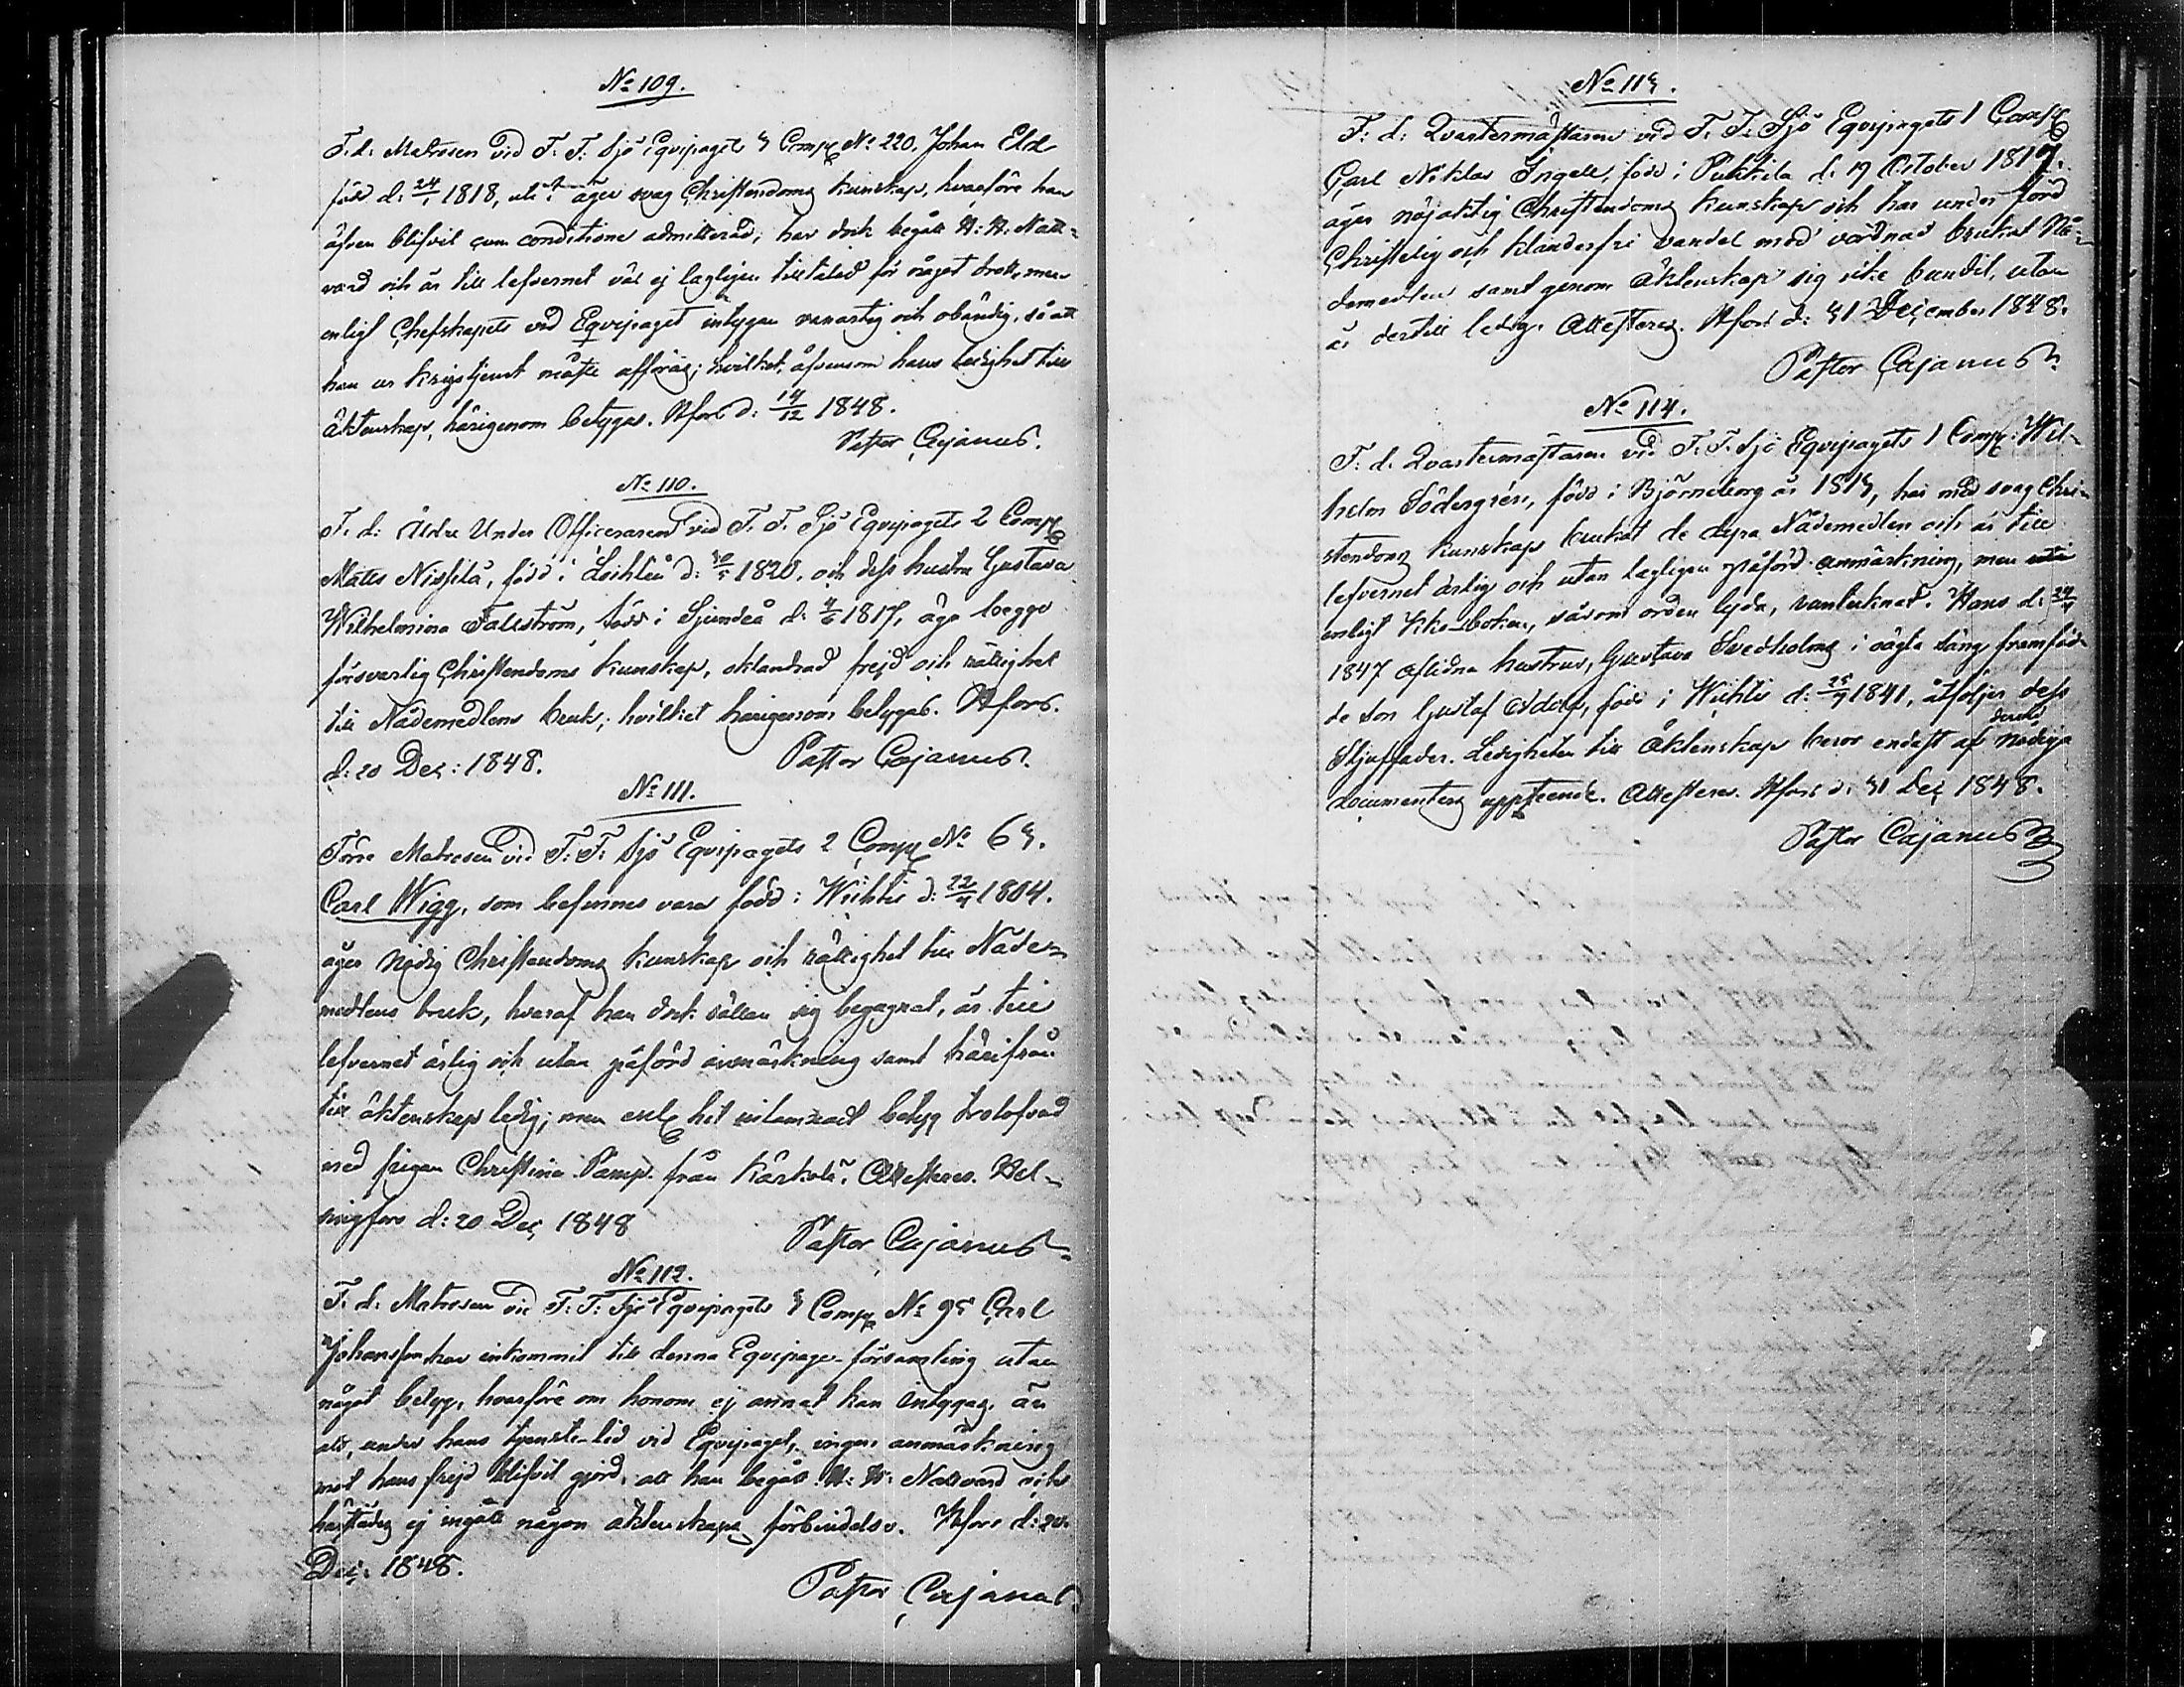 No 109.
F. d. Matrosen vid F. F. Sjö Equipagets 3 Comp No 220. Johan Eld
född d: 24/1 1818, äger svag Christendoms kunskap, hvarföre han
äfven blifvit cum conditione admitterad; har dock begått H: H. Natt-
vard och är till lefvernet väl ej lagligen tilltalad för något brott, men
enligt Chefskapets vid Eqvipaget intygan vanartig och obändig, så att
han ur krigstjenst måste afföras; hvilket, äfvensom hans ledighet till
Äktenskap, härigenom betygas. Hfors d: 14/12 1848.
Pastor Cajanus.
No 110.
F. d: Äldre Under Officeraren vid F. F. Sjö Eqvipagets 2 Comp
Matts Nissilä, född i Loihku d: 30/5 1820, och dess hustru Gustava
Wilhelmina Fallström, född i Sjundeå d: 4/6 1817, äga begge
försvarlig Christendoms kunskap, oklandrad frejd och rättighet
till Nådemedlens bruk; hvilket härigenom betygas. Hfors.
d: 20 Dec: 1848. Pastor Cajanus.
No 111.
Förre Matrosen vid F: F. Sjö Eqvipagets 2 Comp No 63.
Carl Wigg, som befinnes vara född i Wichtis d: 22/4 1804.
äger nödig Christendoms kunskap och rättighet till Nåde-
medlens bruk, hvaraf han dock sällan sig begagnat, är till
lefvernet ärlig och utan påförd anmärkning samt härifrån
till äktenskap ledig; men enl hit inlemnadt betyg trolofvad
med pigan Christina Pamp från Kärkölä. Attesteras. Hel-
singfors d: 20 Dec 1848
Pastor Cajanus
No 112.
F. d. Matrosen vid F: F: Sjö Eqvipagets 3 Comp No 95 Carl
Johansson har inkommit till denna Equipage-församling utan
något betyg, hvarföre om honom ej annat kan intygas, än
att, under hans tjenste-tid vid Eqvipaget, ingen anmärkning
mot hans frejd blifvit gjord, att han begått H: H: Nattvard och
härstädes ej ingått någon äktenskaps förbindelse. Hfors d: 20
Dec: 1848.
Pastor Cajanus
No 113.
F: d: Qvartermästaren vid F. F. Sjö Eqvipagets 1 Comp
Carl Niklas Ingell, född i Pukkila d: 19 October 1817.
äger nöjaktig Christendoms kunskap och har under förd
Christelig och klanderfri vandel med vördnad brukat Nå-
demedlen samt genom äktenskap sig icke bundit, utan
är dertill ledig. Attesteras. Hfors d: 31 December 1848.
Pastor Cajanus
No 114.
F: d. Qvartermästaren vid F. F. Sjö Eqvipagets 1 Comp: Wil-
helm Södergrén, född i Björneborg år 1813, har med svag Chri-
stendoms kunskap brukat de dyra Nådemedlen och är till
lefvernet ärlig och utan lagligen påförd anmärkning, men
enligt Kko-boken, såsom orden lyda, vantecknad. Hans d: 24/4
1847 aflidna hustrus, Gustava Svedholms i oägta säng framföd-
de son Gustaf Adolf, född i Wichtis d: 25/7 1841, åtföljer dess
Stjuffader. Ledigheten till Äktenskap beror endast af nödiga derutöf
documenters uppteende. Attesteras. Hfors d: 31 Dec 1848.
Pastor Cajanus